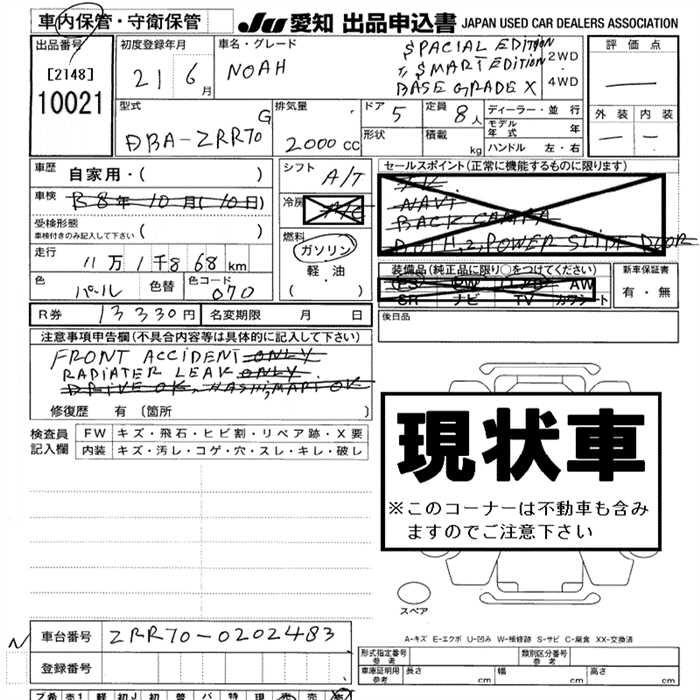 車内保管・守衛保管
JU 愛知 出品申込書 JAPAN USED CAR DEALERS ASSOCIATION
出品番号
[2148]
10021
初度登録年月
21 6月
車名・グレード
NOAH
SPACIAL EDITION
"SMART EDITION
BASE GRADE X
2WD
・
4WD
評価点
外装 内装
型式
G
DBA-ZRR70
排気量
2000CC
ドア 5
形状
定員 8人
積載 kg
ディーラー・並行
モデル年式 年
ハンドル 左・右
車歴 自家用・( )
車検 R8年10月(10日)
受検形態
車検付きのみ記入して下さい ( )
走行 11万1千868km
色 パール 色替 色コード 070
シフト A/T
冷房 A/C
燃料
ガソリン
軽・油
( ・ )
セールスポイント(正常に機能するものに限ります)
NAVI
BACK CAMERA
BOTH.2.POWER SLIDE DOOR
装備品(純正品に限り○をつけてください)
PS PW AW
SR ナビ TV カワシート
新車保証書
有・無
後日品
R券 13330円 名変期限 月 日
注意事項申告欄(不具合内容等は具体的に記入して下さい)
FRONT ACCIDENT ONLY
RADIATER LEAK ONLY.
DRIVE OK,
修復歴 有 〔箇所 〕
検査員記入欄
FW キズ・飛石・ヒビ割・リペア跡・X要
内装 キズ・汚レ・コゲ・穴・スレ・キレ・破レ
現状車
※このコーナーは不動車も含み
ますのでご注意下さい
スペア
A-キズ E-エクボ U-凹み W-補修跡 S-サビ C-腐食 XX-交換済
N
車台番号 ZRR70-0202483
登録番号
形式指定番号 参考
類別区分番号 参考
車庫証明用 参考 長さ cm 幅 cm 高さ cm